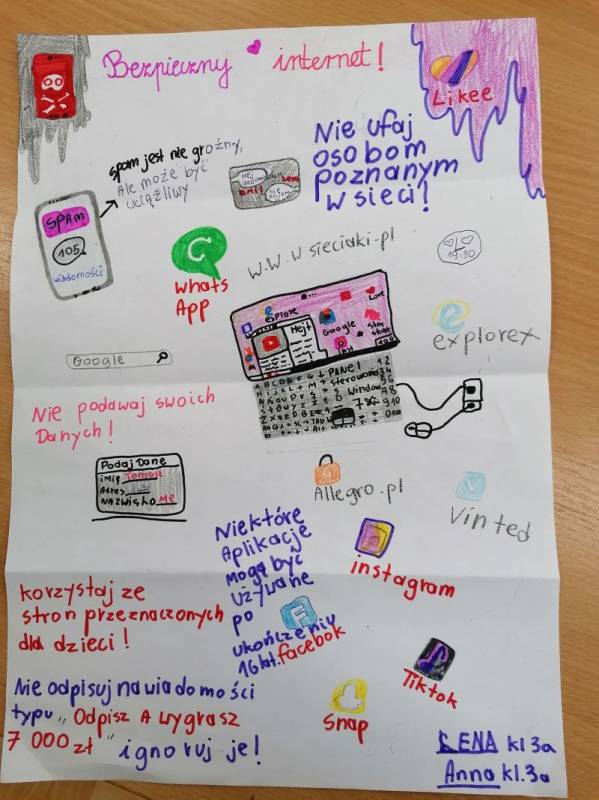 Bezpieczny internet!
Likee
spam jest nie groźny,
Ale może być
uciążliwy
SPAM
105
wiadomości
Nie ufaj
osobom
poznanym
w sieci!
Whats
App
w.w.w sieciaki.pl
19:30
explore
Hejt
Google
Love
explorex
Google
PANEl
sterowania
Window
Nie podawaj swoich
Danych!
Podaj Dane
imię Tomasz
Adres
NAZWisko
Allegro.pl
Vinted
Niektóre
Aplikacje
Mogą być
używane
po
ukończeniu
16 lat.
facebok
instagram
Tiktok
Snap
korzystaj ze
stron przeznaczonych
dla dzieci!
Nie odpisuj na wiadomości
typu „Odpisz A wygrasz
7 000 zł" ignoruj je!
LENA kl 3a
Anna kl.3a